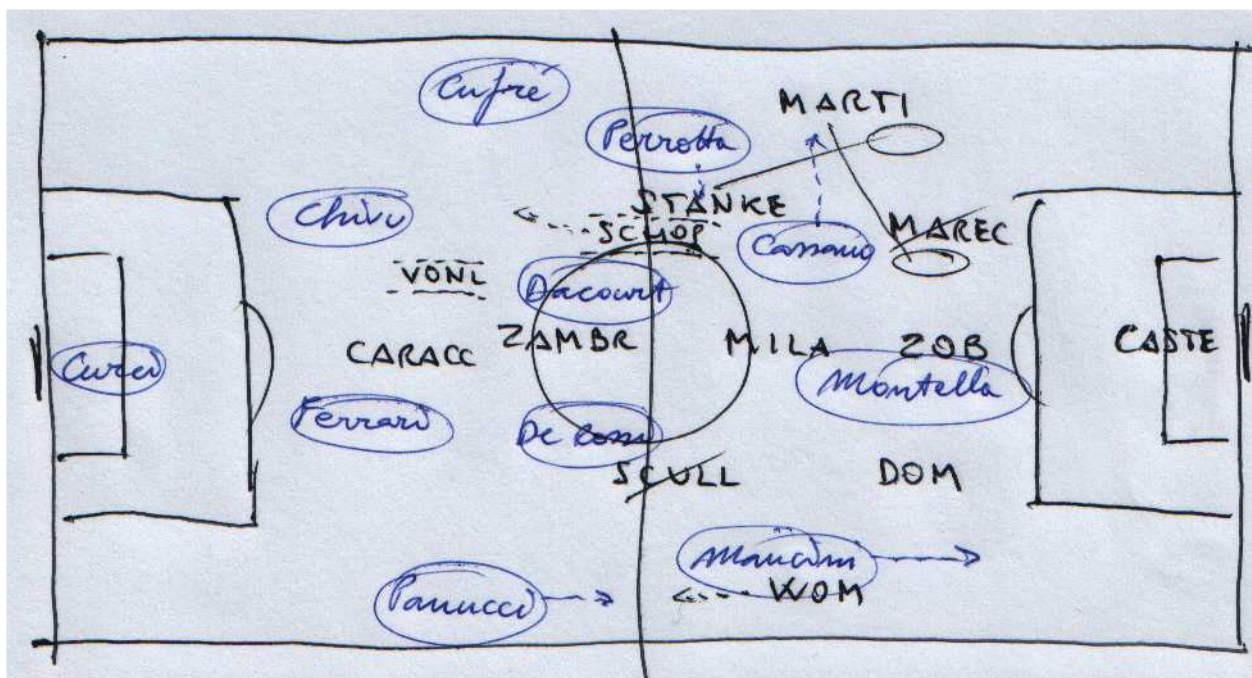 Cufré
MARTI
Perrotta
Chivu
STANKE
SCHOP
Cassano
MAREC
VONL
Dacourt
CARACC
ZAMBR
MILA
ZOB
CASTE
Curci
Montella
Ferrari
De Rossi
SCULL
DOM
Mancini
Panucci
WOM